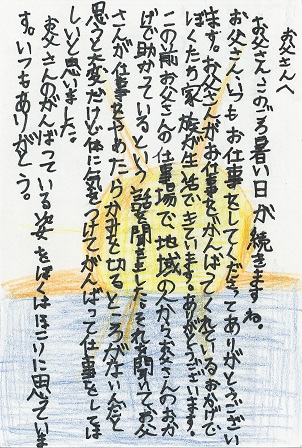 お父さんへ
お父さんこのごろ暑い日が続きますね。
お父さんいつもお仕事をしてくださってありがとうござい
ます。お父さんがお仕事をがんばってくれているおかげで
ぼくたち家族が生活できています。ありがとうございます。
この前お父さんの仕事場で、地域の人からお父さんのおか
げで助かっているという話を聞きました。それを聞いてお父
さんが仕事をやめたらかみを切るところがないんだと
思うと大変だけど体に気をつけてがんばって仕事をしてほ
しいと思いました。
お父さんのがんばっている姿をぼくはほこりに思っていま
す。いつもありがとう。